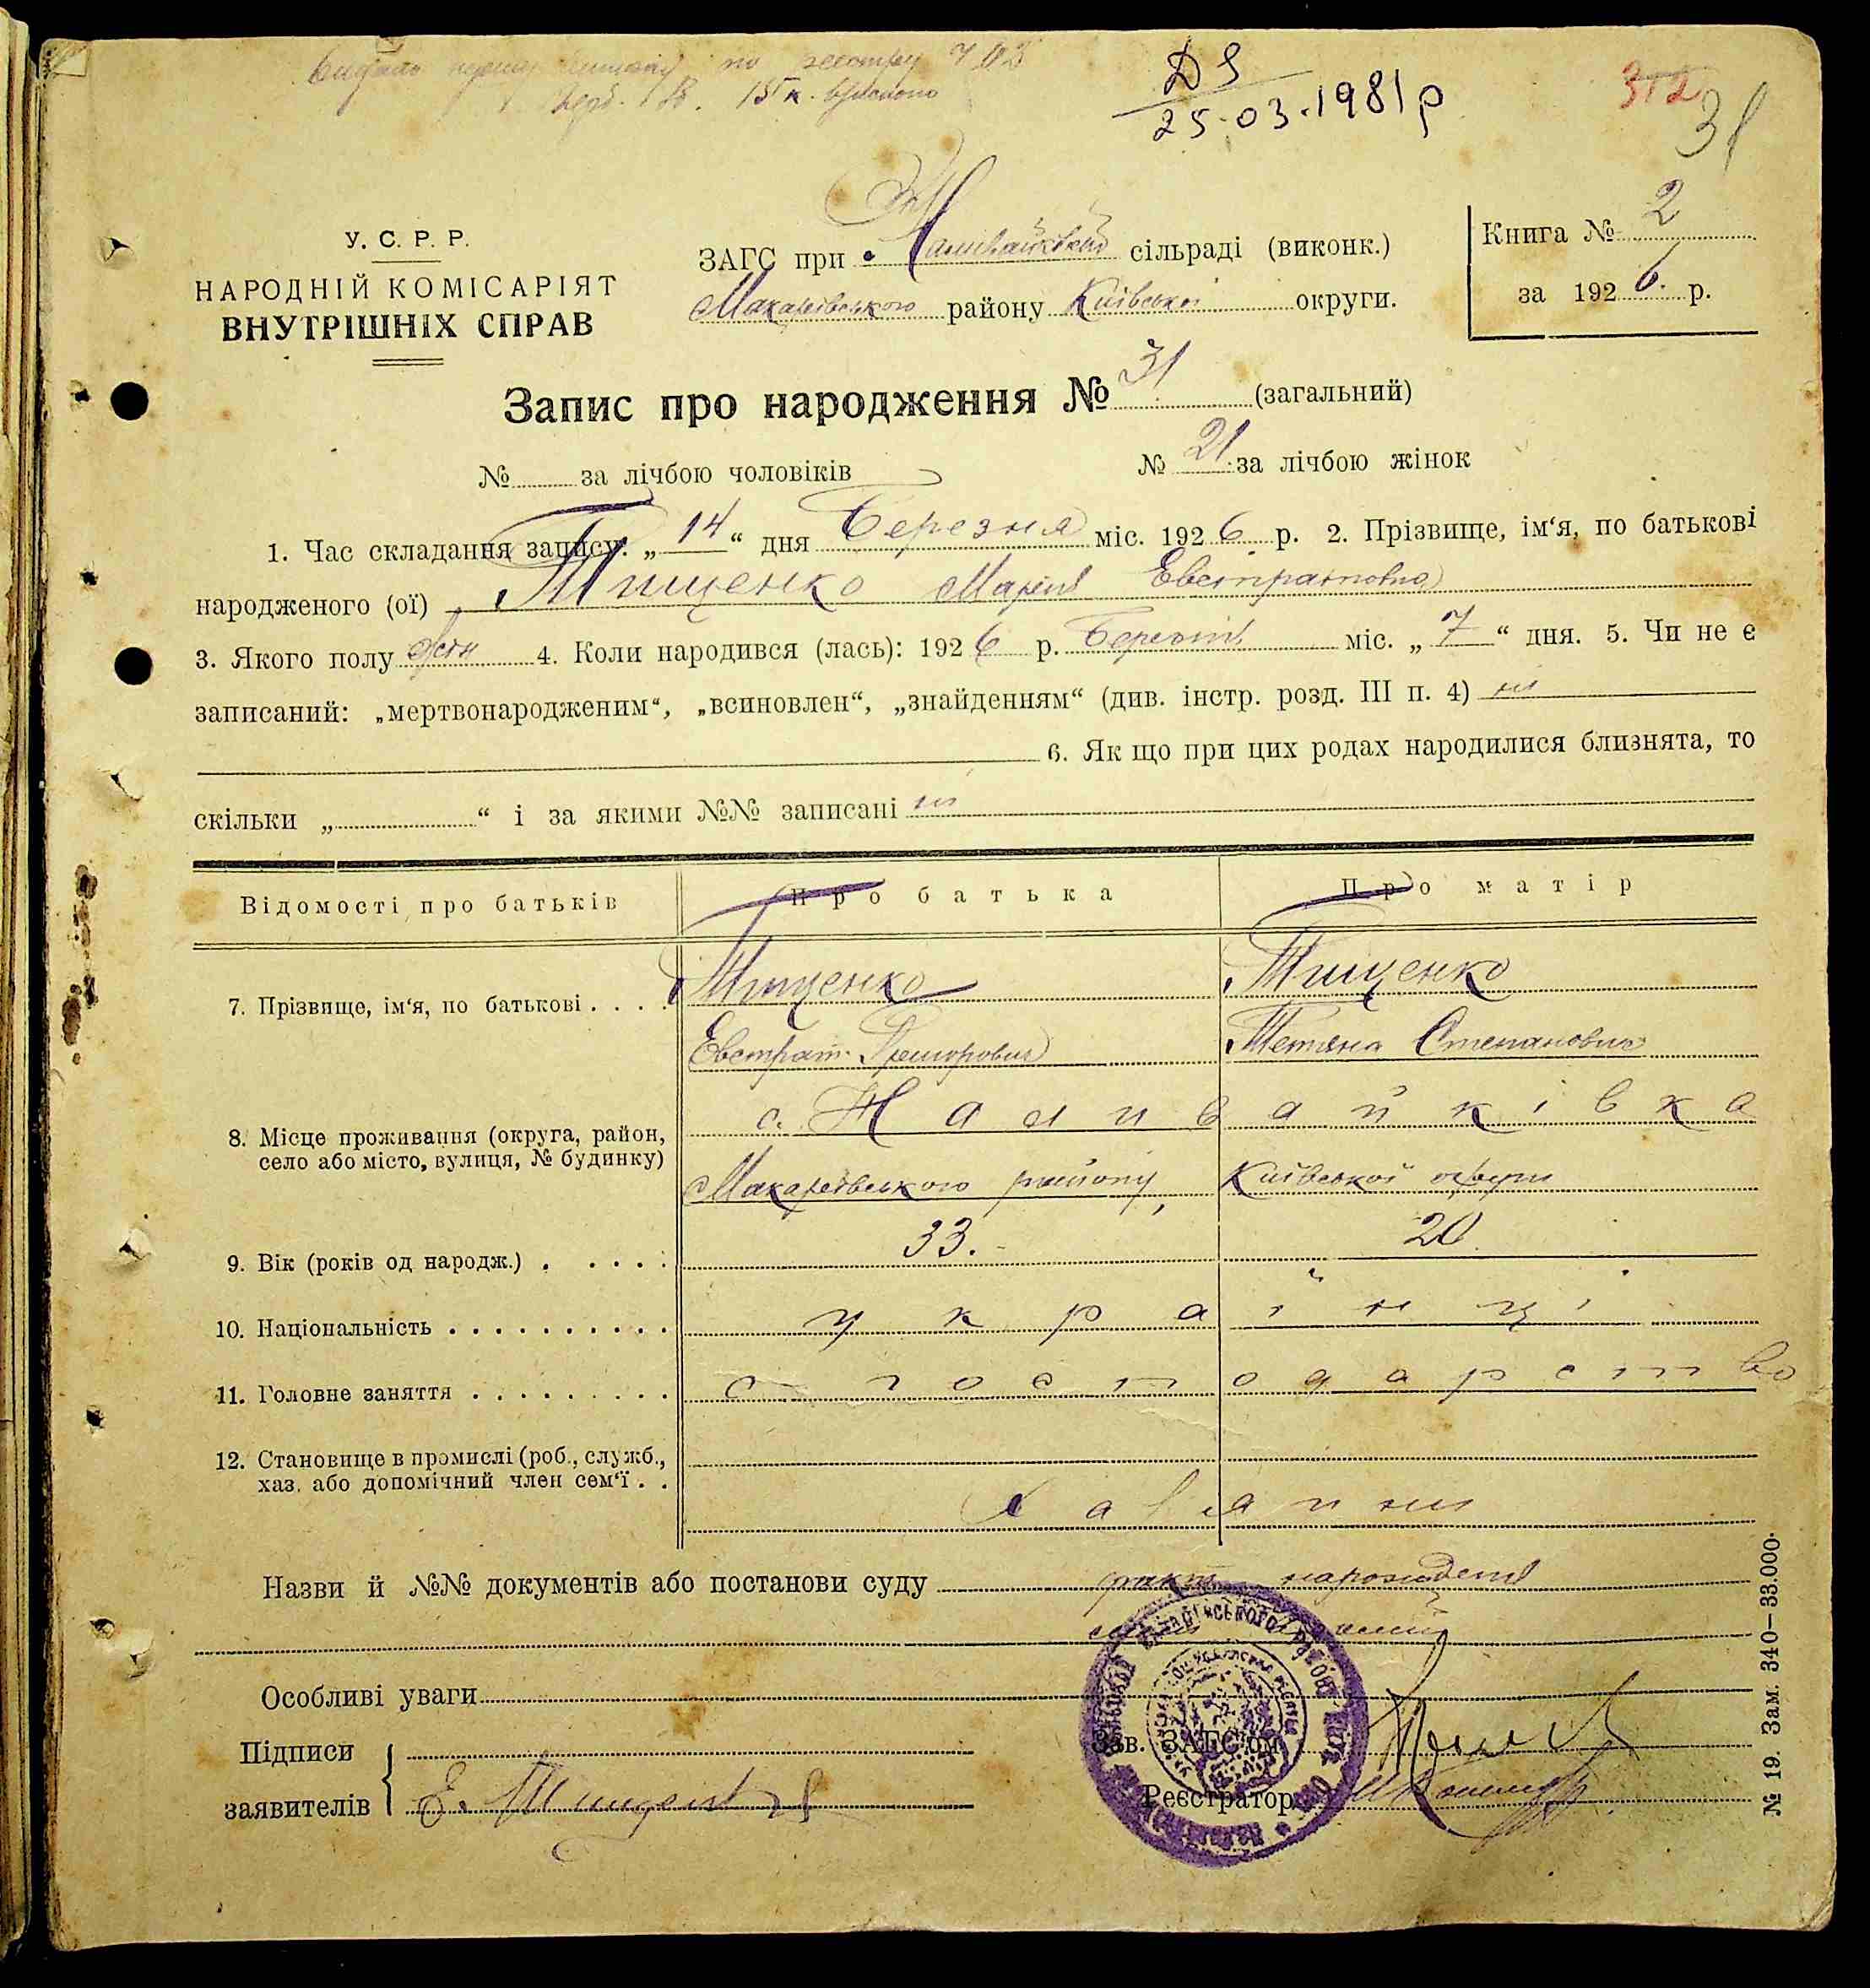 по реєстру 703
Д 9
25.03.1981 р
312
31
У. С. Р. Р.
НАРОДНІЙ КОМІСАРІЯТ
ВНУТРІШНІХ СПРАВ
ЗАГС при Наливайківській сільраді (виконк.)
Макарівського району Київської округи.
Книга № 2
за 1926 р.
Запис про народження № 31 (загальний)
№ за лічбою чоловіків № 21 за лічбою жінок
1. Час складання запису: „14“ дня Березня міс. 1926 р. 2. Прізвище, ім‘я, по батькові
народженого (ої) Тищенко Марія Евстратовна
3. Якого полу жін 4. Коли народився (лась): 1926 р. міс. „7“ дня. 5. Чи не є
записаний: „мертвонародженим“, „всиновлен“, „знайденням“ (див. інстр. розд. III п. 4) ні
6. Як що при цих родах народилися близнята, то
скільки „ “ і за якими №№ записані ні
Відомості про батьків Про батька Про матір
Тищенко Тищенко
7. Прізвище, ім‘я, по батькові . . . .
Евстрат Григорович Тетяна Степановна
с. Наливайківка
8. Місце проживання (округа, район,
село або місто, вулиця, № будинку)
Макарівського району, Київської округи
9. Вік (років од народж.) . . . . . 33. 20
10. Національність . . . . . . . . . . українці
11. Головне заняття . . . . . . . . . с господарство
12. Становище в промислі (роб., служб.,
хаз. або допомічний член сем‘ї . .
хазяини
Назви й №№ документів або постанови суду народження
Особливі уваги
Підписи
заявителів Е. Тищенко
Зав. ЗАГС‘ом
Реєстратор
№ 19. Зам. 340—33.000.